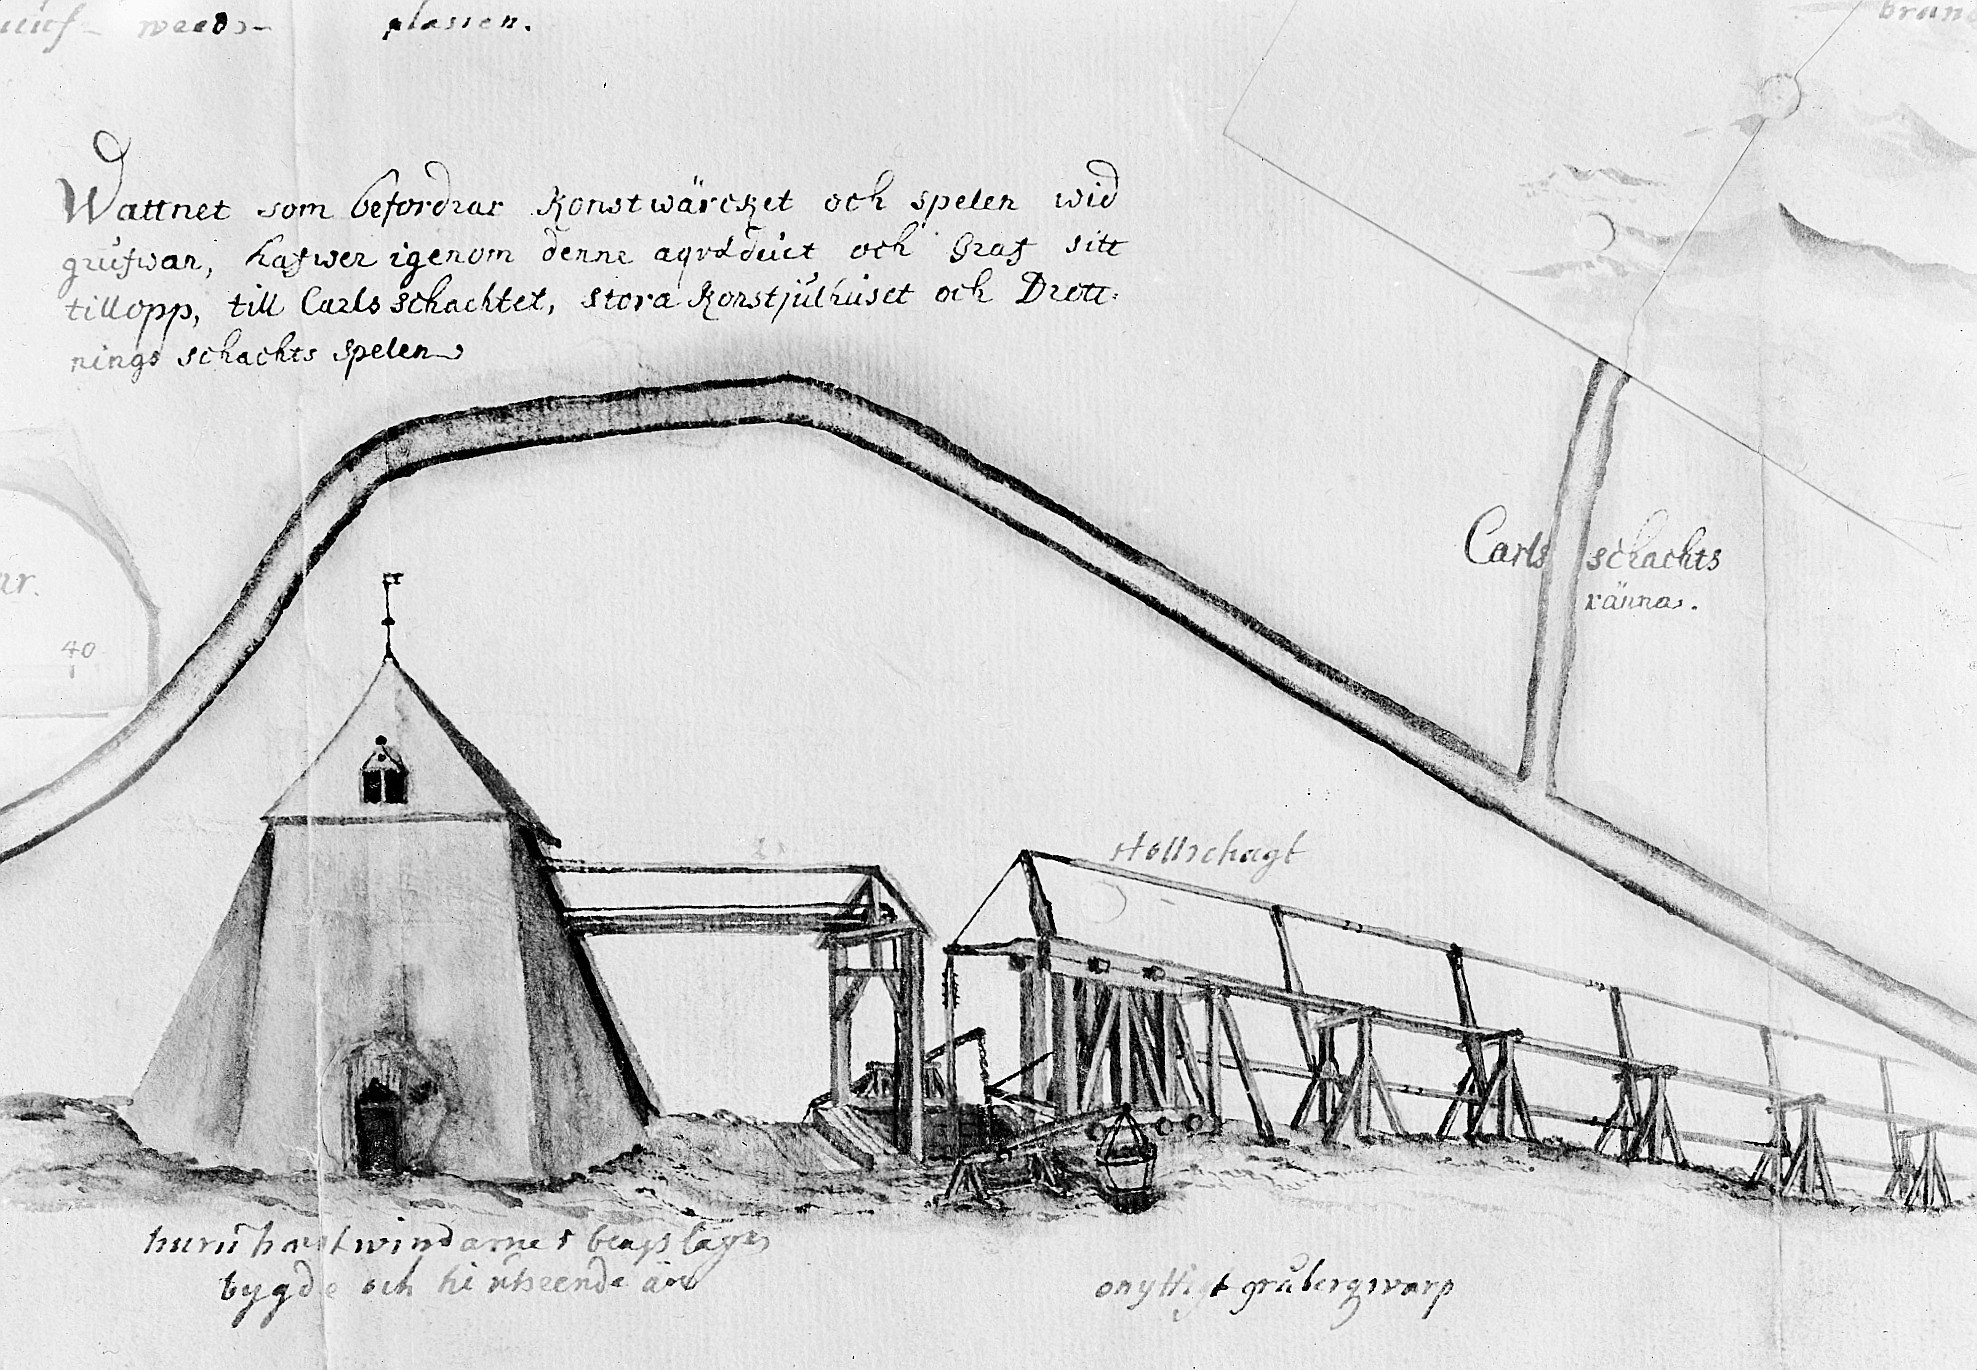 plassen.
Wattnet som befordrar Konstwärcket och spelen wid
grufwan, hafwer igenom denne aqvæduct och Graf sitt
tillopp, till Carls schachtet, stora Konstjulhuset och Drott-
nings schachts spelen
Carls schachts
ränna.
40
Stollschagt
huru hästwindarnes
bygde och
onyttigt gråbergswarp